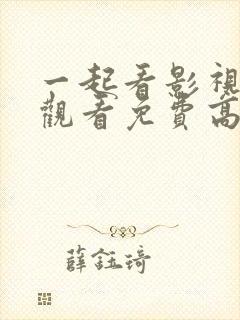 一起看影視
觀看免費高
薛鈺琦